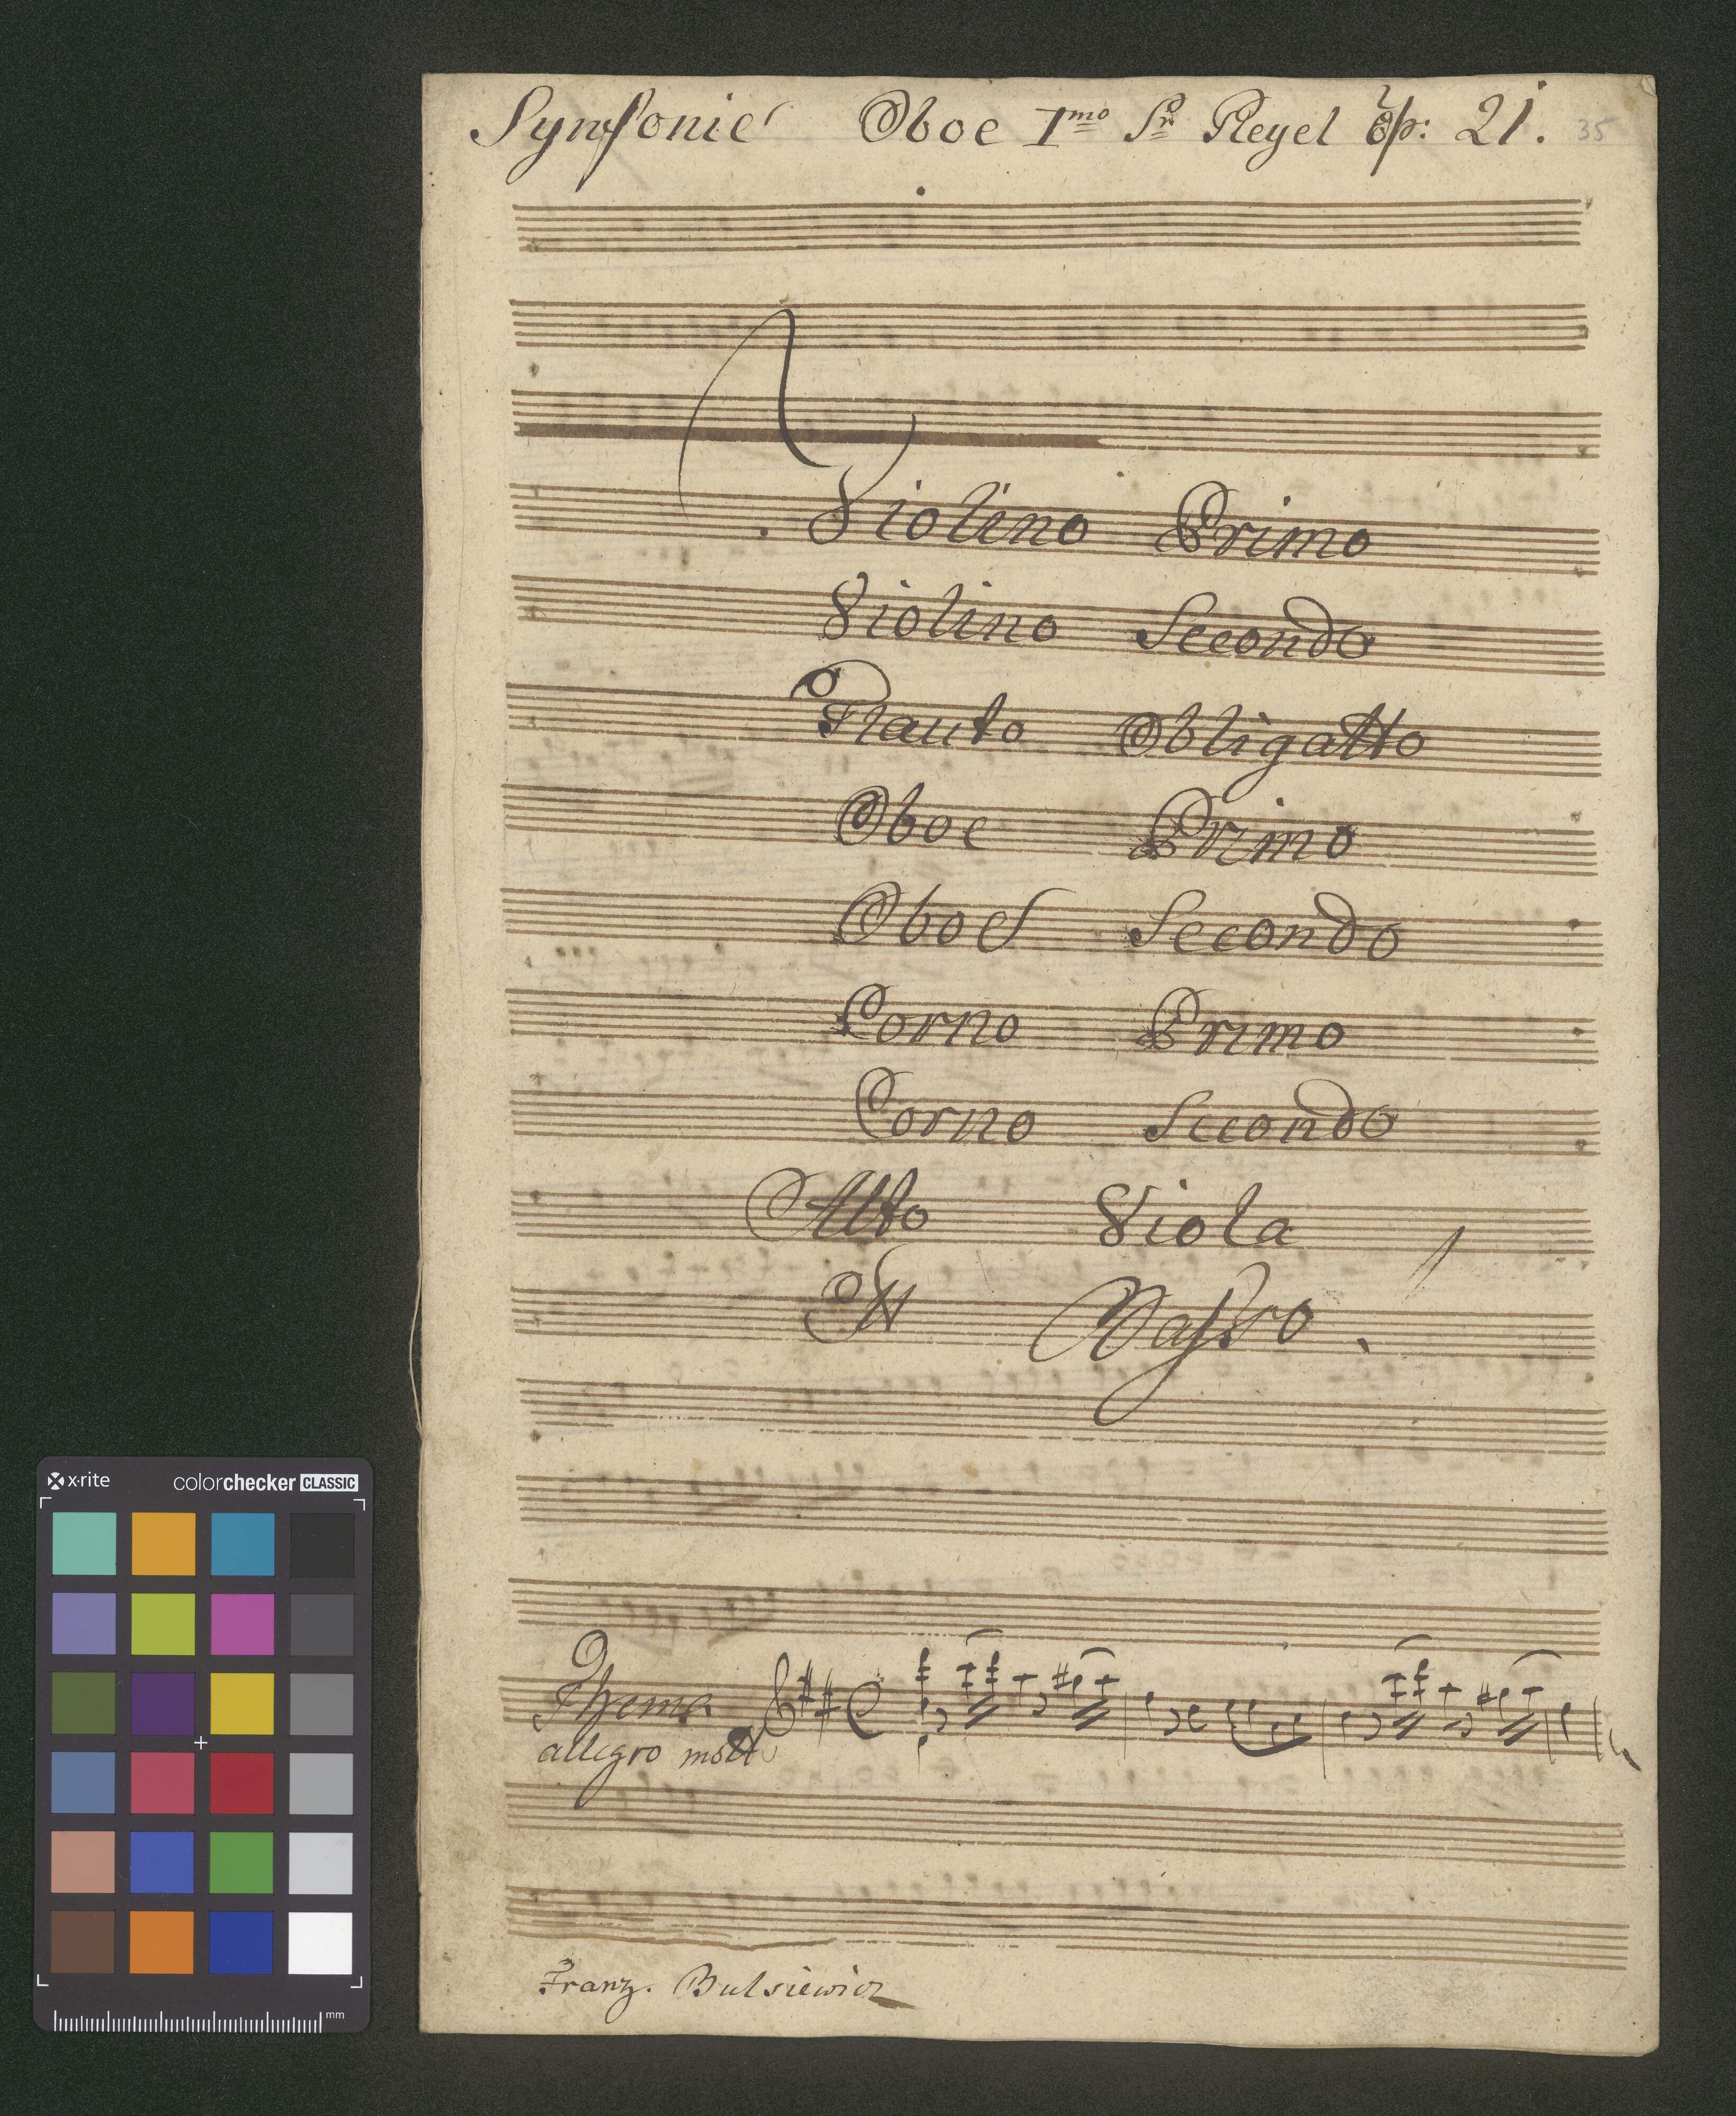 Symfonie Oboe Imo Sr Pleyel Op: 21. 35
Violino Primo
Violino Secondo
Flauto Obligatto
Oboe Primo
Oboe Secondo
Corno Primo
Corno Secondo
Alto Viola
Et Basso.
Thema
allegro molto
Franz. Bulsiewicz
x·rite colorchecker CLASSIC
mm